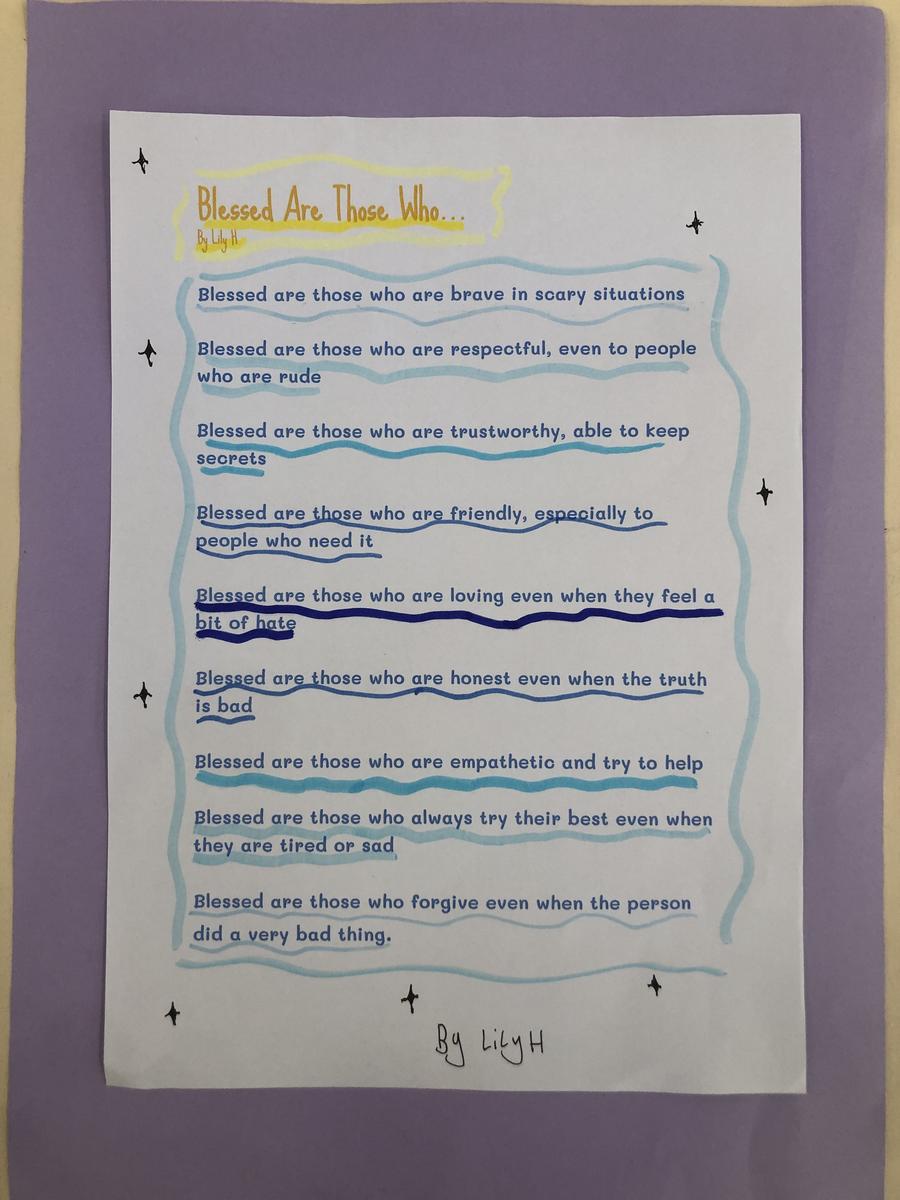 Blessed Are Those Who...
By Lily H
Blessed are those who are brave in scary situations
Blessed are those who are respectful, even to people
who are rude
Blessed are those who are trustworthy, able to keep
secrets
Blessed are those who are friendly, especially to
people who need it
Blessed are those who are loving even when they feel a
bit of hate
Blessed are those who are honest even when the truth
is bad
Blessed are those who are empathetic and try to help
Blessed are those who always try their best even when
they are tired or sad
Blessed are those who forgive even when the person
did a very bad thing.
By Lily H